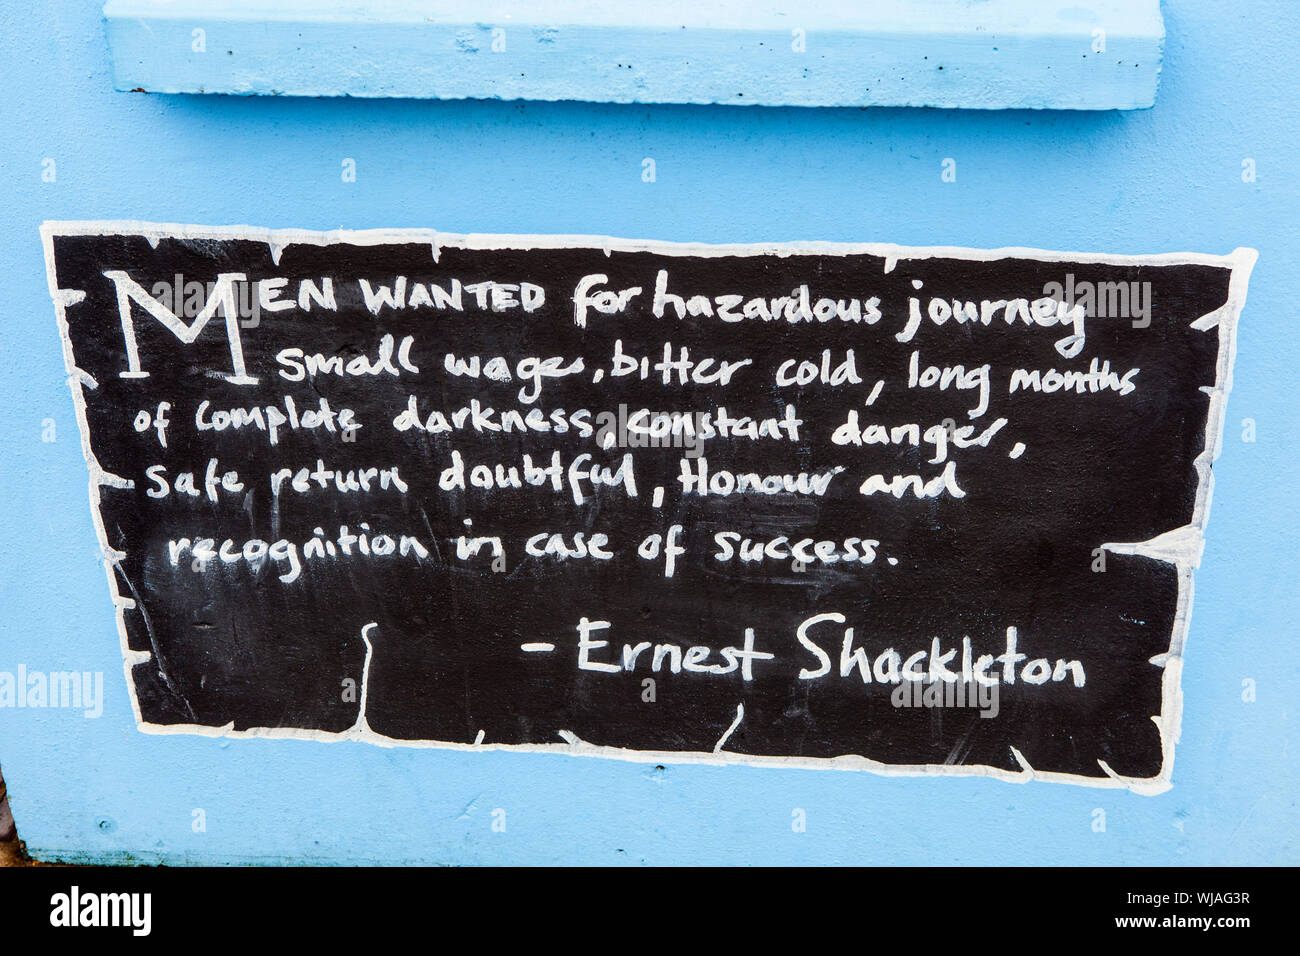 MEN WANTED for hazardous journey
small wages, bitter cold, long months
of complete darkness, constant danger,
safe return doubtful, Honour and
recognition in case of success.
- Ernest Shackleton
a alamy stock photo
alamy
Image ID: WJAG3R
www.alamy.com